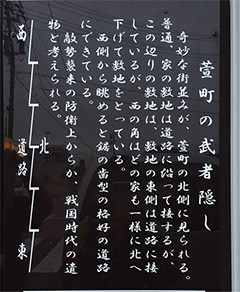 萱町の武者隠し
奇妙な街並みが、萱町の北側に見られる。
普通、家の敷地は道路に沿って接するが、
この辺りの敷地は、敷地の東側は道路に接
しているが、西の角はどの家も一様に北へ
下げて敷地をとっている。
西側から眺めると鋸の歯型の格好の道路
にできている。
敵勢襲来の防衛上からか、戦国時代の遺
物と考えられる。
西
道路
北
東